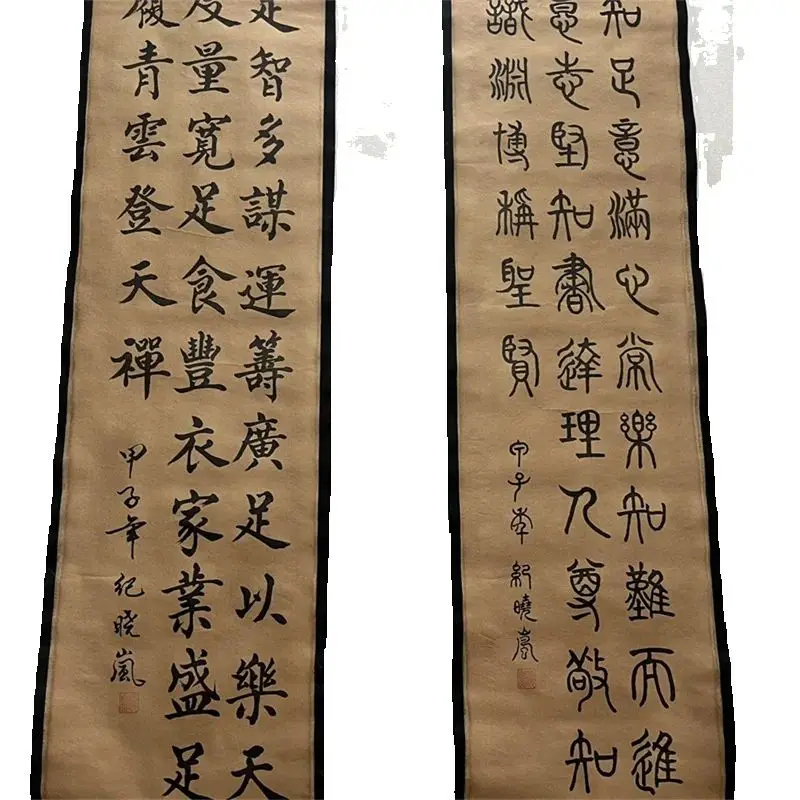 知足意滿心常樂知難而進
意志堅知書達理人尊敬知
識淵博稱聖賢
甲子年 紀曉嵐
足智多謀運籌廣足以樂天
度量寬足食豐衣家業盛足
履青雲登天禪
甲子年 紀晓嵐